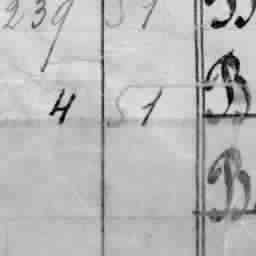 239 51 B
4 51 B
B